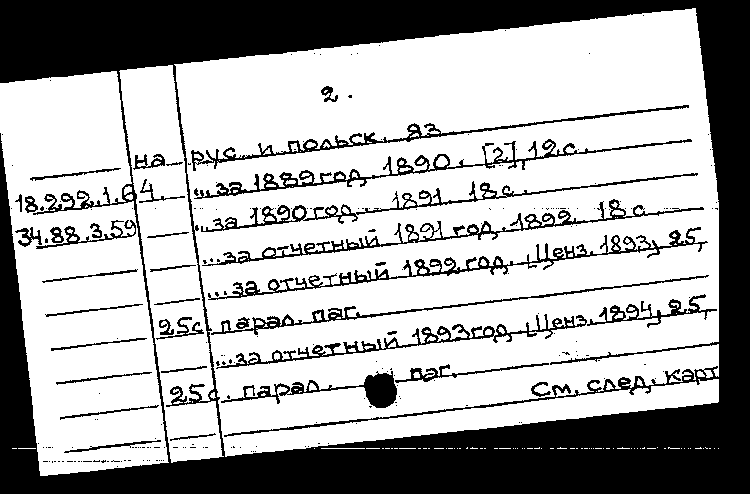 2.
на рус. и польск. яз.
18.292.1.64. ...за 1889 год. 1890. [2], 12 с.
34.88.3.59 ...за 1890 год. 1891. 18 с.
...за отчетный 1891 год. 1892. 18 с.
...за отчетный 1892 год. Ценз. 1893, 25,
25 с. парал. паг.
...за отчетный 1893 год. Ценз. 1894, 25,
25 с. парал. паг.
См. след. карт